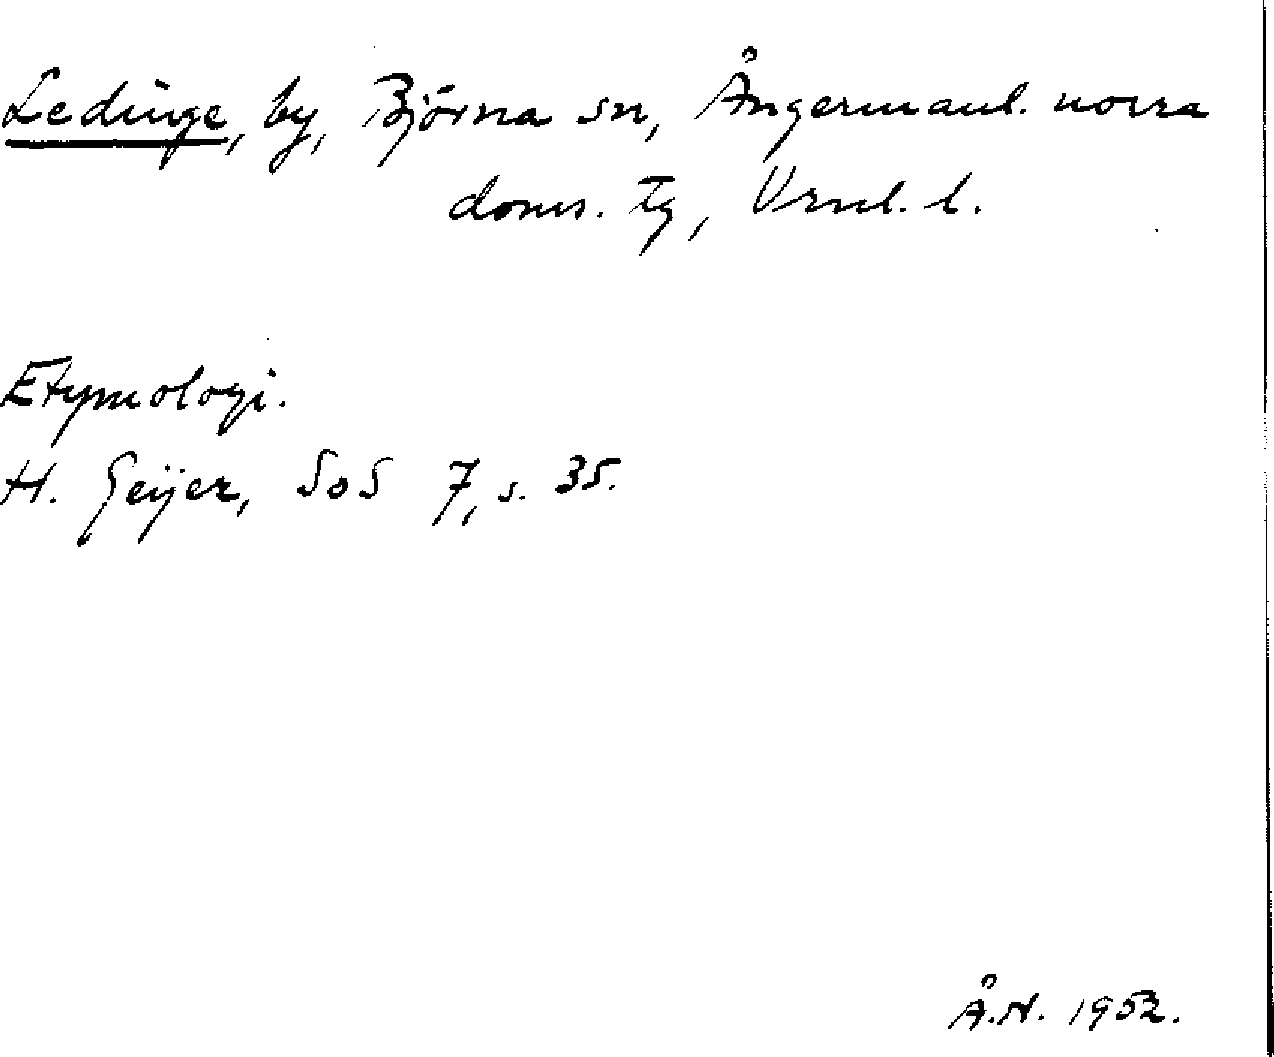 Ledinge, by, Björna sn, Ångermanl. norra
doms. tg, Vrnl. l.
Etymologi.
H. Geijer, SoS 7, s. 35.
Å.N. 1952.